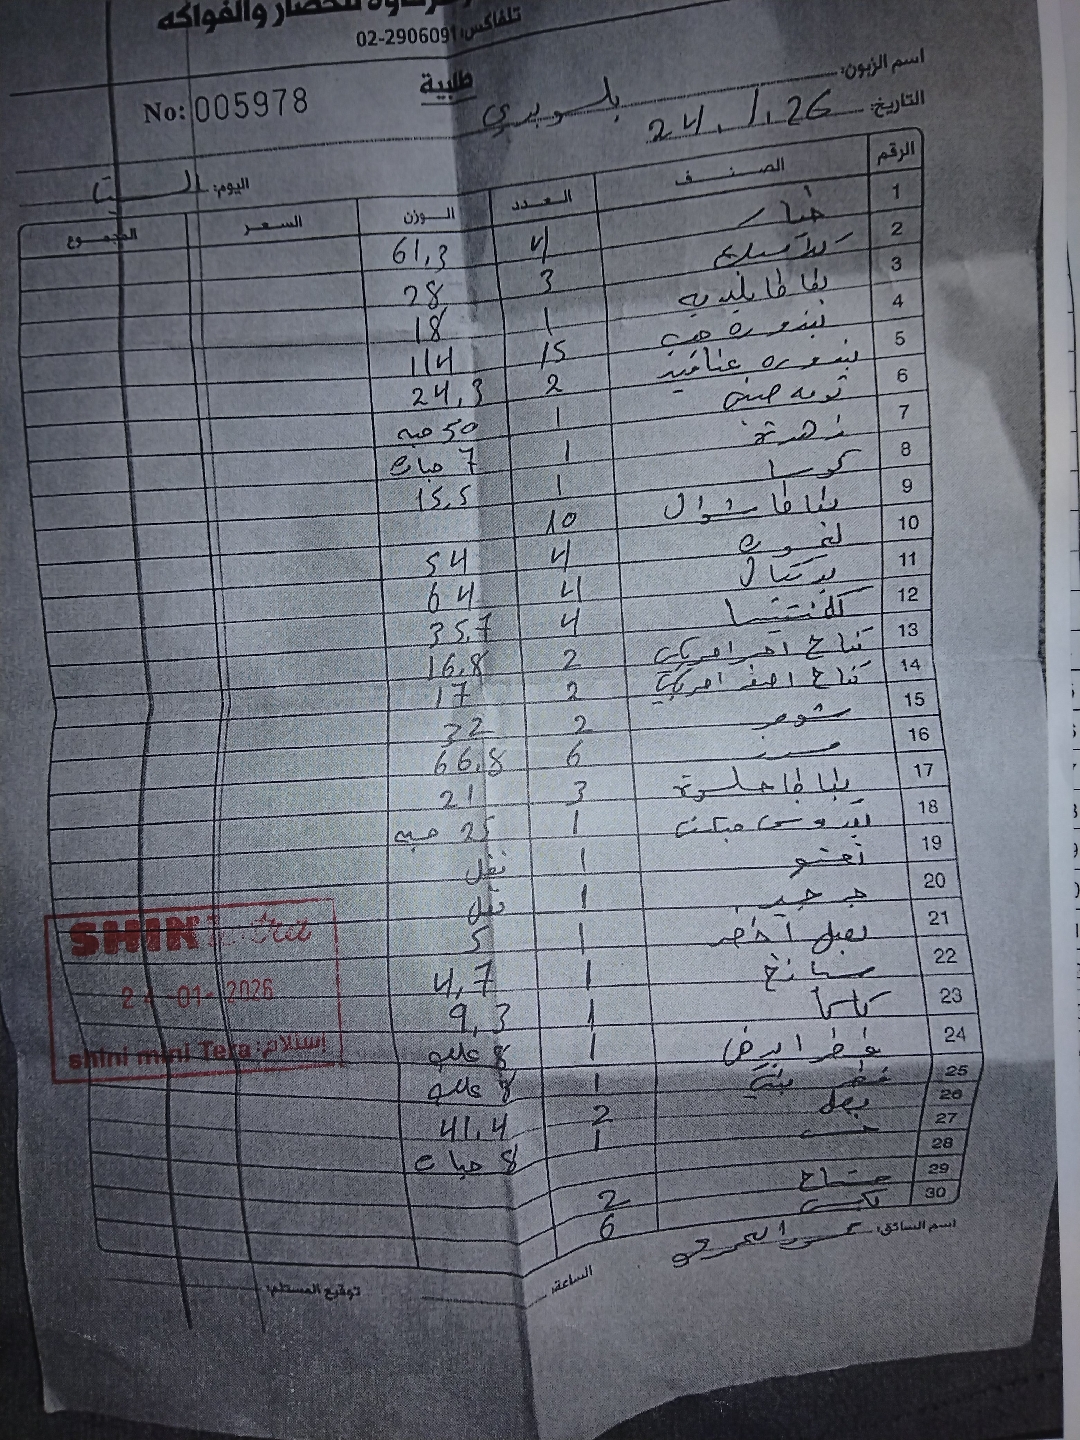 للخضار والفواكه
تلفاكس: 02-2906091
طلبية
No: 005978
اسم الزبون:
التاريخ: 24.1.26
اليوم: السبت
الرقم الصنف العدد الوزن السعر المجموع
1 خيار 4 61,3
2 3 28
3 بطاطا بلديه 1 18
4 بندوره حب 15 114
5 بندوره عناقيد 2 24,3
6 1 50 حبه
7 زهرة 1 7 حبات
8 كوسا 1 15,5
9 بطاطا شوال 10
10 4 54
11 برتقال 4 64
12 كلمنتينا 4 35,7
13 تفاح احمر امريكي 2 16,8
14 تفاح اصفر امريكي 2 17
15 2 32
16 6 66,8
17 بطاطا حلوة 3 21
18 1 25 حبه
19 1
20 جرجير 1
21 بصل اخضر 1 5
22 سبانخ 1 4,7
23 1 9,3
24 فطر ابيض 1 8 علبه
25 فطر بني 1 8 علبه
26 بصل 2 41,4
27 خس 1 8 حبات
28
29 2
30 6
SHINI
24-01-2026
shini mini Tera إستلام:
اسم السائق:
الساعة:
توقيع المستلم: